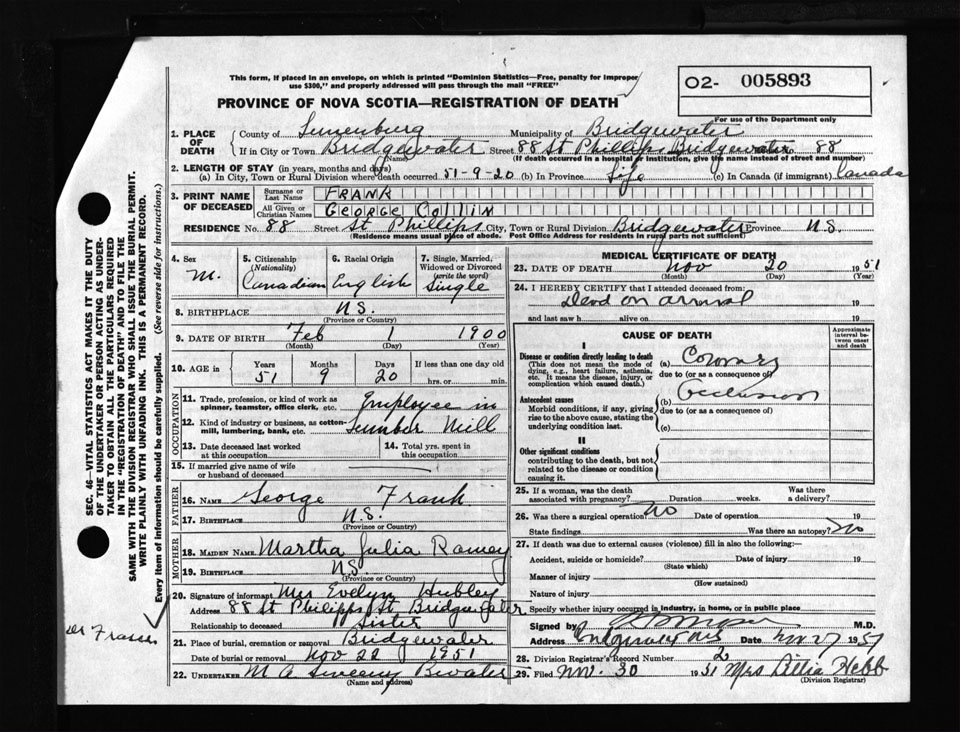 This form, if placed in an envelope, on which is printed "Dominion Statistics—Free, penalty for improper
use $300," and properly addressed will pass through the mail "FREE"
PROVINCE OF NOVA SCOTIA—REGISTRATION OF DEATH
02- 005893
For use of the Department only
1. PLACE OF DEATH { County of Lunenburg Municipality of Bridgewater
If in City or Town Bridgewater Street 88 St Phillips Bridgewater No. 88
(Name) (If death occurred in a hospital or institution, give the name instead of street and number)
2. LENGTH OF STAY (in years, months and days)
(a) In City, Town or Rural Division where death occurred 51-9-20 (b) In Province Life (c) In Canada (if immigrant) Canada
3. PRINT NAME OF DECEASED { Surname or Last Name FRANK
All Given or Christian Names GEORGE COLLIN
RESIDENCE No. 88 Street St Phillips City, Town or Rural Division Bridgewater Province N.S.
(Residence means usual place of abode. Post Office Address for residents in rural parts not sufficient)
4. Sex M. 5. Citizenship (Nationality) Canadian 6. Racial Origin English 7. Single, Married, Widowed or Divorced (write the word) Single
8. BIRTHPLACE N.S.
(Province or Country)
9. DATE OF BIRTH Feb 1 1900
(Month) (Day) (Year)
10. AGE in Years 51 Months 9 Days 20 If less than one day old hrs. or min.
OCCUPATION
11. Trade, profession, or kind of work as spinner, teamster, office clerk, etc. Employee in
12. Kind of industry or business, as cotton-mill, lumbering, bank, etc. Lumber Mill
13. Date deceased last worked at this occupation 14. Total yrs. spent in this occupation
15. If married give name of wife or husband of deceased
FATHER
16. NAME George Frank
17. BIRTHPLACE N.S.
(Province or Country)
MOTHER
18. MAIDEN NAME Martha Julia Ramey
19. BIRTHPLACE N.S.
(Province or Country)
20. Signature of informant Mrs Evelyn Hubley
Address 88 St Philipps St Bridgewater
Relationship to deceased Sister
21. Place of burial, cremation or removal Bridgewater
Date of burial or removal Nov 22 1951
22. UNDERTAKER M A Sweeny Bwater
(Name and address)
MEDICAL CERTIFICATE OF DEATH
23. DATE OF DEATH Nov 20 1951
(Month) (Day) (Year)
24. I HEREBY CERTIFY that I attended deceased from:
Dead on arrival 19
and last saw h alive on 19
CAUSE OF DEATH
Approximate interval between onset and death
I
Disease or condition directly leading to death (a) Coronary
(This does not mean the mode of dying, e.g., heart failure, asthenia, etc. It means the disease, injury, or complication which caused death.)
due to (or as a consequence of)
Antecedent causes (b) Occlusion
Morbid conditions, if any, giving rise to the above cause, stating the underlying condition last.
due to (or as a consequence of)
(c)
II
Other significant conditions
contributing to the death, but not related to the disease or condition causing it.
25. If a woman, was the death associated with pregnancy? Duration weeks. Was there a delivery?
26. Was there a surgical operation? no Date of operation 19
State findings Was there an autopsy? no
27. If death was due to external causes (violence) fill in also the following:
Accident, suicide or homicide? Date of injury 19
(State which)
Manner of injury
(How sustained)
Nature of injury
Specify whether injury occurred in industry, in home, or in public place
Signed by M.D.
Address Date Nov 27 1951
28. Division Registrar's Record Number 2
29. Filed Nov. 30 1951 Mrs Lillia Hebb
(Division Registrar)
SEC. 46—VITAL STATISTICS ACT MAKES IT THE DUTY
OF THE UNDERTAKER OR PERSON ACTING AS UNDER-
TAKER TO OBTAIN ALL THE PARTICULARS REQUIRED
IN THE "REGISTRATION OF DEATH" AND TO FILE THE
SAME WITH THE DIVISION REGISTRAR WHO SHALL ISSUE THE BURIAL PERMIT.
WRITE PLAINLY WITH UNFADING INK. THIS IS A PERMANENT RECORD.
Every item of information should be carefully supplied. (See reverse side for instructions.)
Dr Fraser